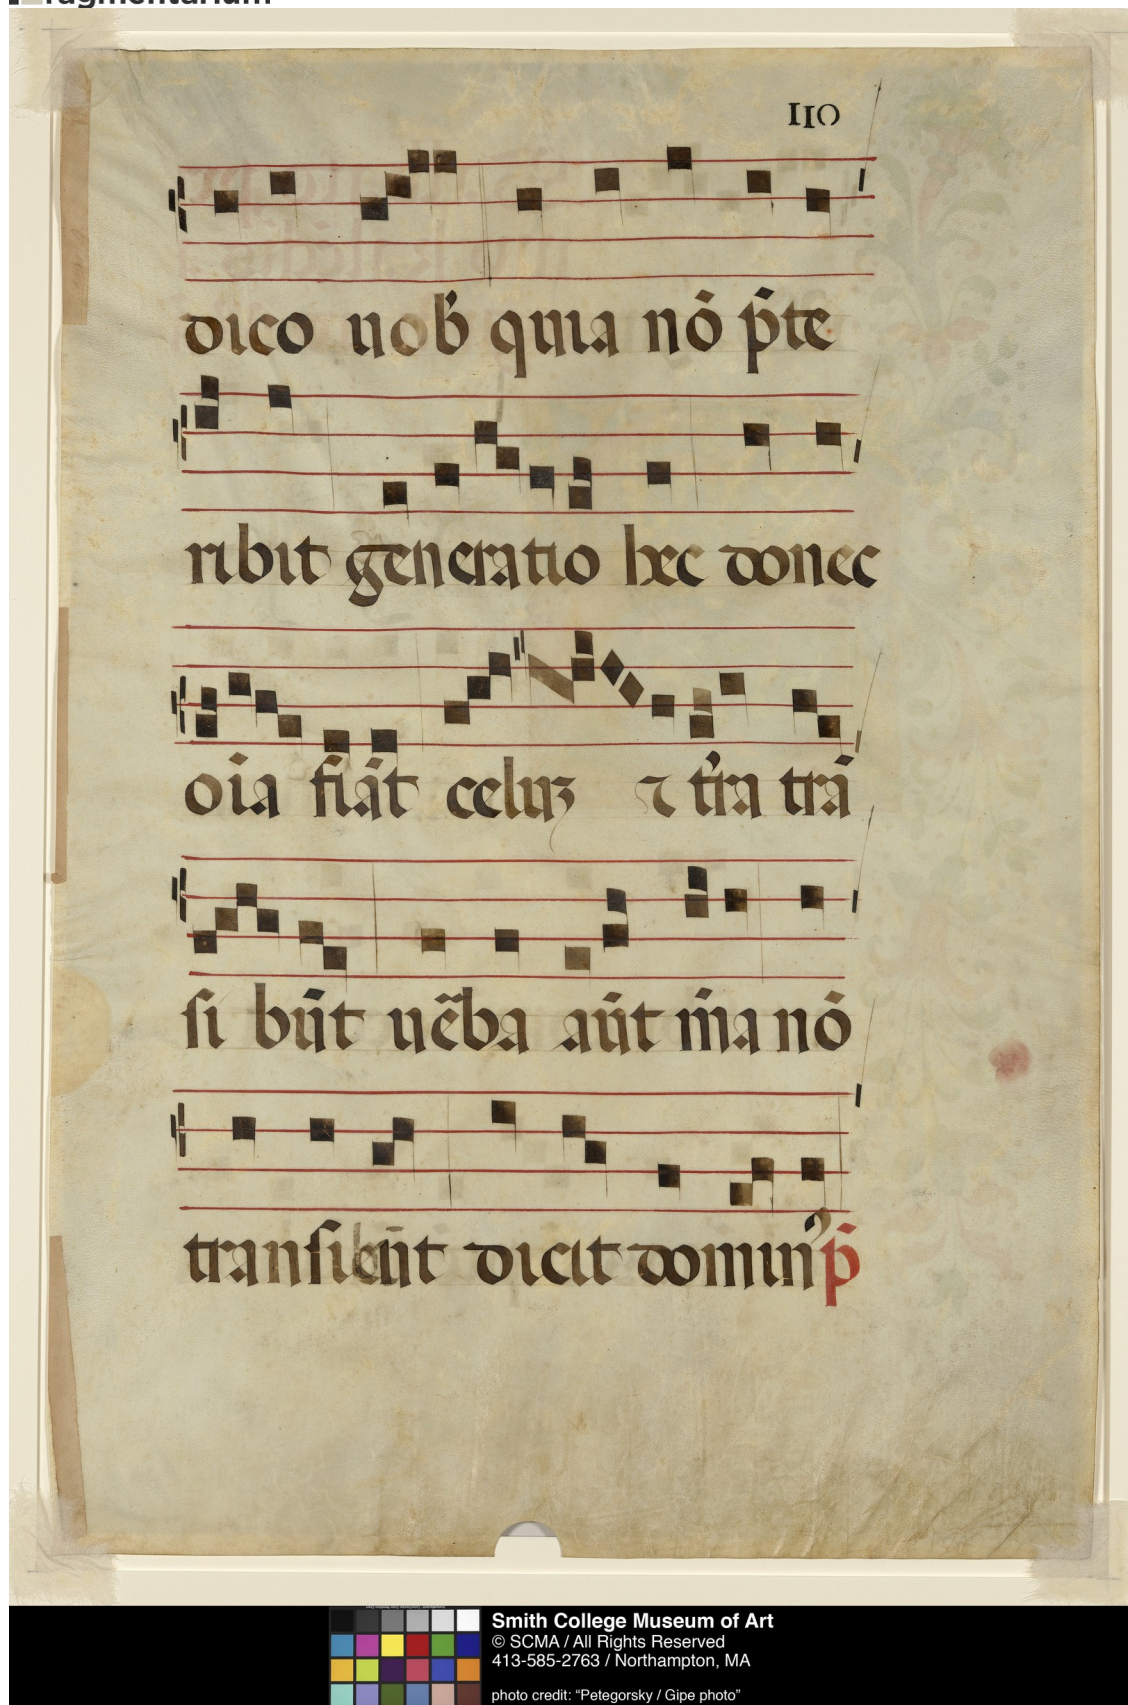 fragmentarium
110
dico nob̄ quia nō p̄te
ribit generatio hec donec
oīa fiāt celuꝫ ⁊ t̄ra trā
si būt ūe̅ba aūt m̄a nō
transibūt dicit dominꝰ p̄
Smith College Museum of Art
© SCMA / All Rights Reserved
413-585-2763 / Northampton, MA
photo credit: “Petegorsky / Gipe photo”